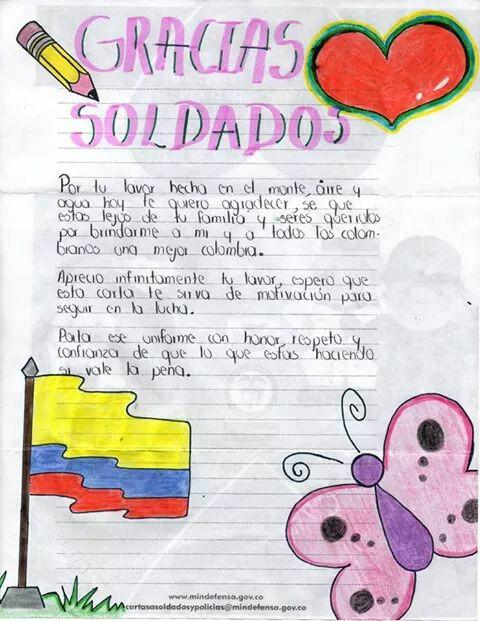 GRACIAS
SOLDADOS
Por tu lavor hecha en el monte, aire y
agua hoy te quiero agradecer, se que
estas lejos de tu familia y seres queridos
por brindarme a mi y a todos los colom-
bianos una mejor colombia.
Aprecio infinitamente tu lavor, espero que
esta carta te sirva de motivación para
seguir en la lucha.
Porta ese uniforme con honor, respeto y
confianza de que lo que estas haciendo
si vale la pena.
www.mindefensa.gov.co
cartasasoldadosypolicias@mindefensa.gov.co